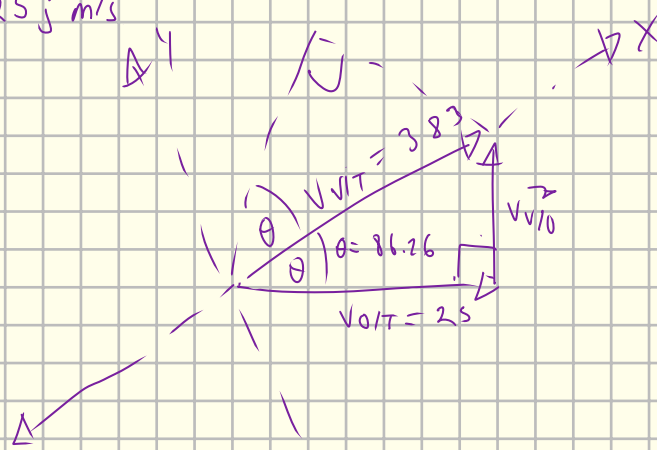 25 j m/s
Y
N
X
V V/T = 383
θ
θ = 86.26
θ
V V/O
V O/T = 25